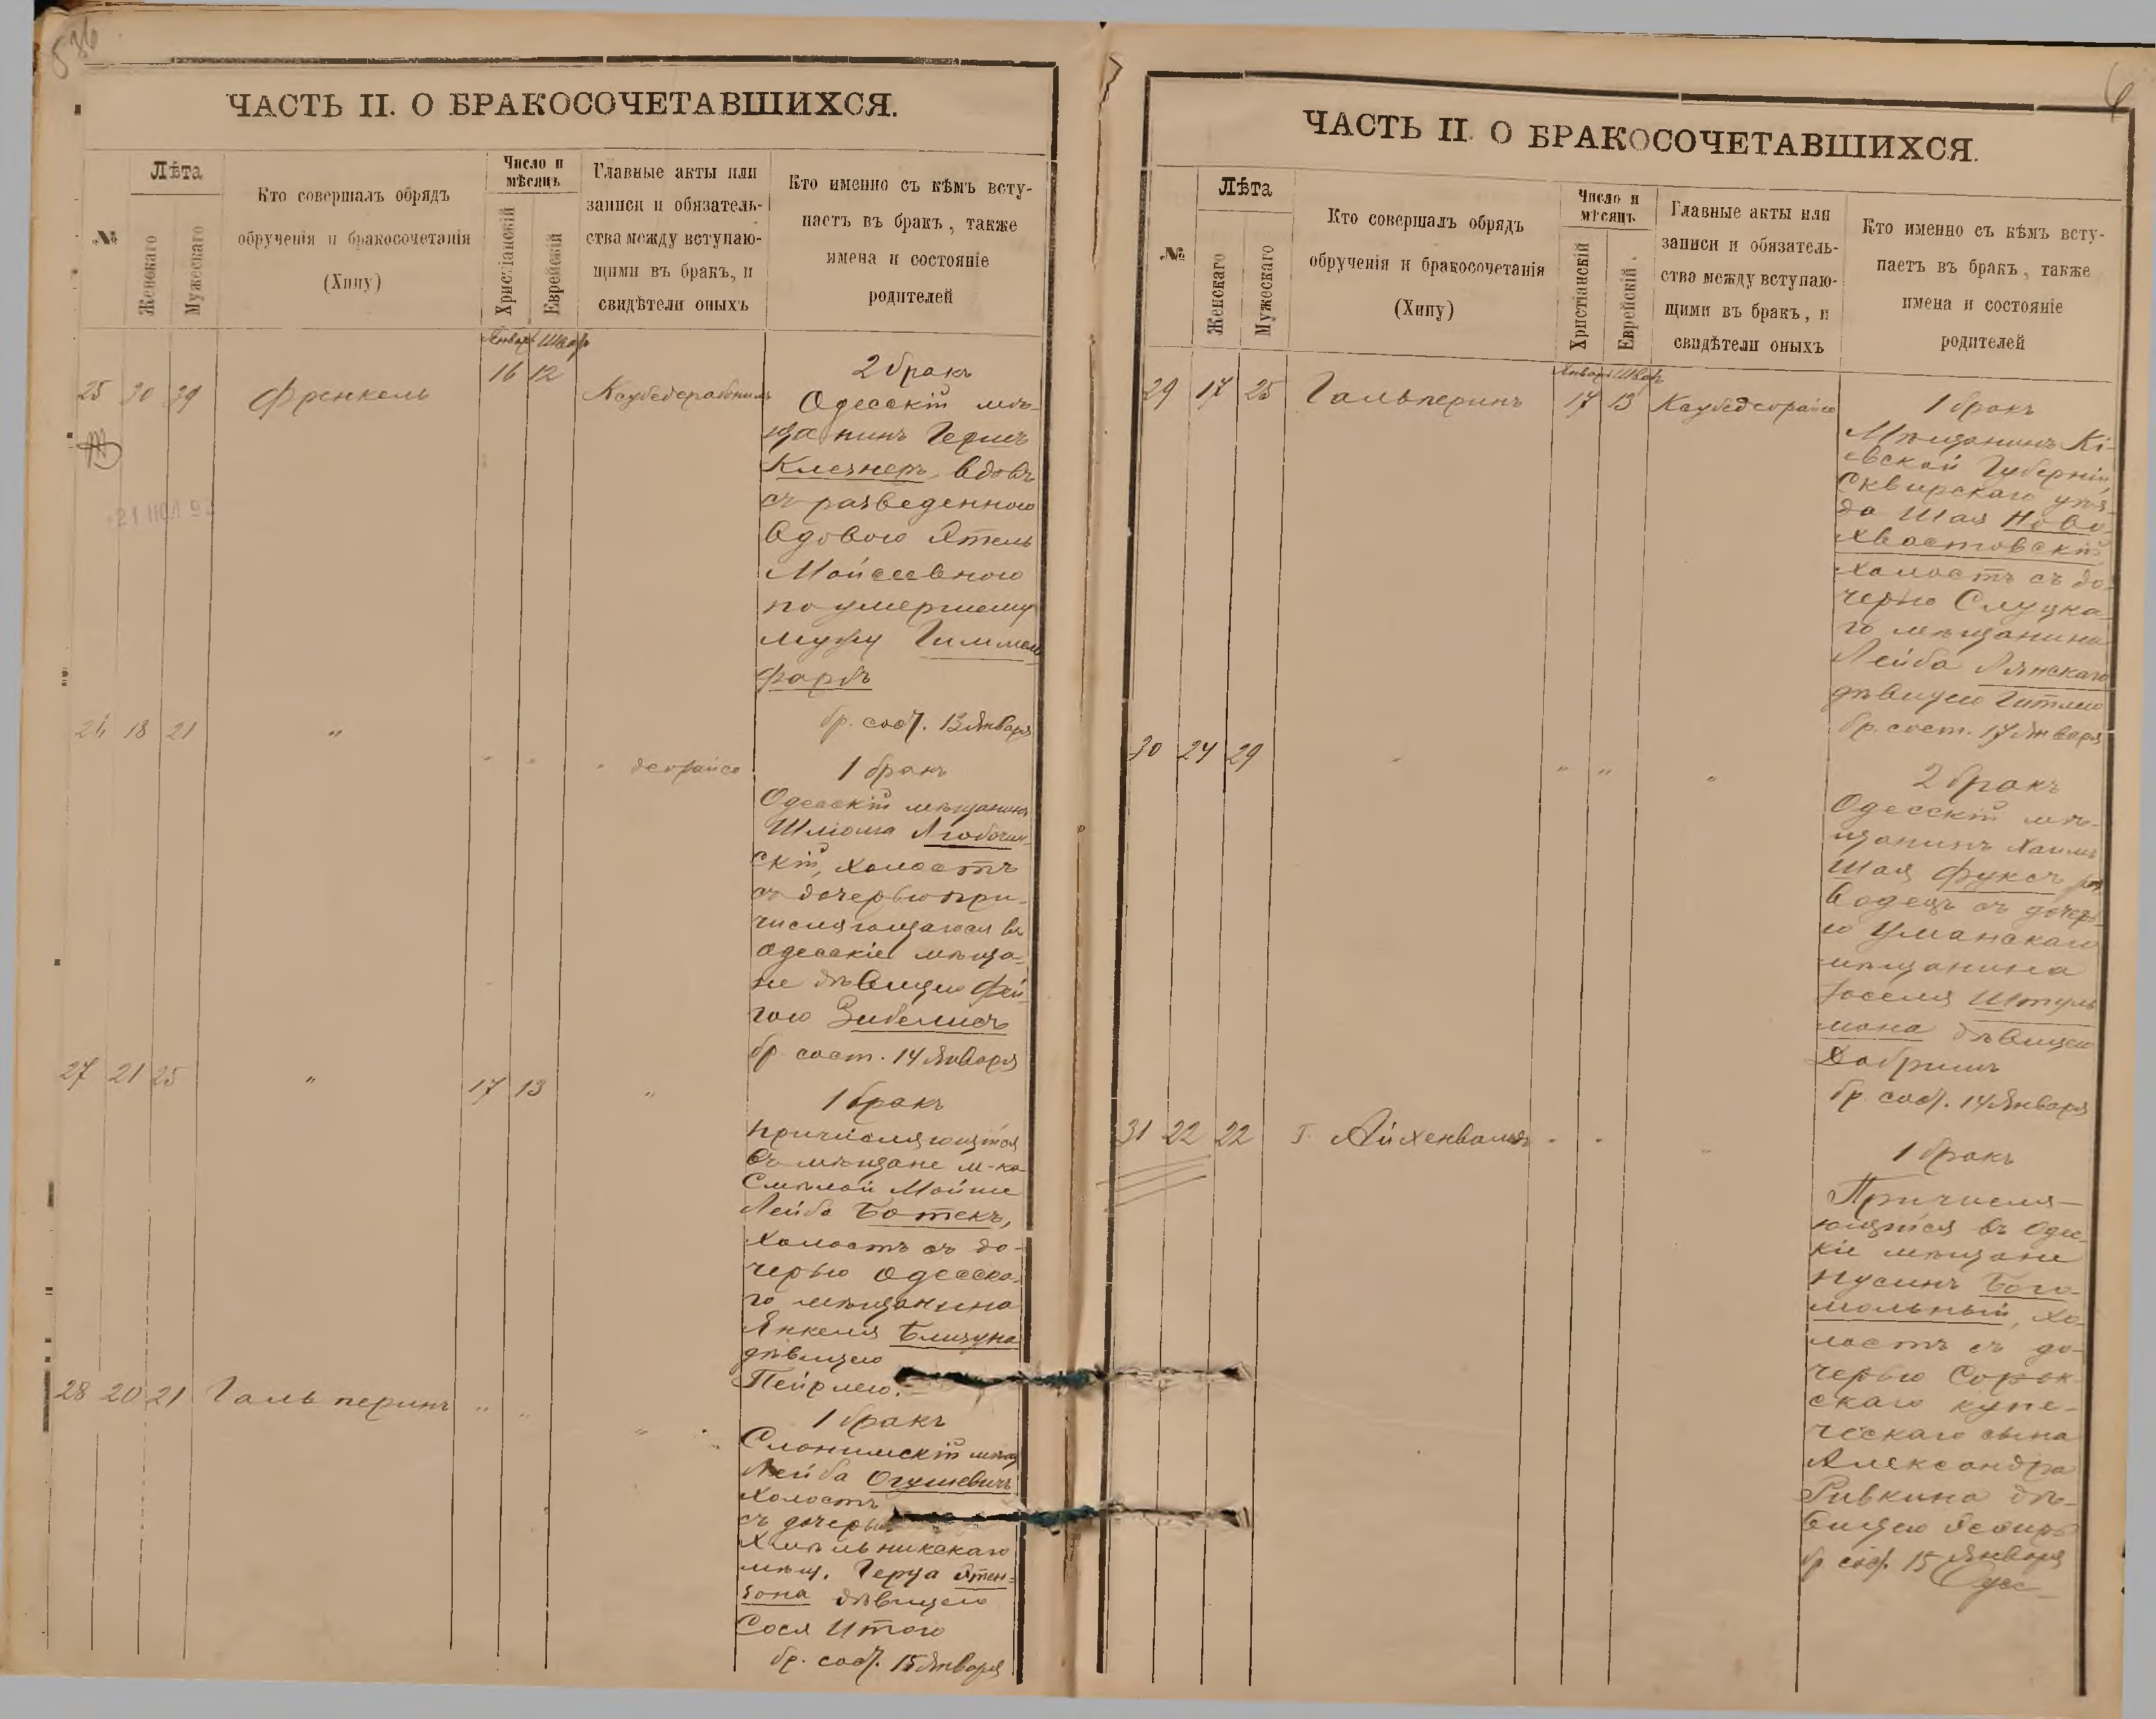 536
ЧАСТЬ II. О БРАКОСОЧЕТАВШИХСЯ.
№
Лѣта
Женскаго
Мужескаго
Кто совершалъ обрядъ
обрученія и бракосочетанія
(Хипу)
Число и
мѣсяцъ
Христіанскій
Еврейскій
Главные акты или
записи и обязатель-
ства между вступаю-
щими въ бракъ, и
свидѣтели оныхъ
Кто именно съ кѣмъ всту-
паетъ въ бракъ, также
имена и состояніе
родителей
Январ Шват
25 30 39 Френкель 16 12
2 бракъ
Одесскій мѣ-
щанинъ Гершъ
Клезнеръ, вдовъ
съ разведенного
вдового Этель
Мойсеевного
по умершему
мужу Гиммель
фарбъ
бр. сост. 13 Января
26 18 21 " " " " деорайсо
1 бракъ
Одесскій мѣщанинъ
Шліома Любочин-
скій, холостъ
съ дочерью при-
числяющагося въ
одесскіе мѣща-
не дѣвицею Фей-
гою Зибелисъ
бр. сост. 14 Января
27 21 25 " 17 13 "
1 бракъ
Причисляющійся
въ мѣщане м-ка
Смѣлой Мойше
Лейба Ботекъ,
холостъ съ до-
черью одесска-
го мѣщанина
Янкеля Близуна
дѣвицею
Пейрлею.
28 20 21 Гальперинъ " " "
1 бракъ
Слонимскій мѣщ
Лейба Огушевичъ
холостъ
съ дочерью
Хмѣльникскаго
мѣщ. Герца Этен-
зона дѣвицею
Сося Итою
бр. сост. 15 Января
21 ИЮЛ 92
6
ЧАСТЬ II. О БРАКОСОЧЕТАВШИХСЯ.
№
Лѣта
Женскаго
Мужескаго
Кто совершалъ обрядъ
обрученія и бракосочетанія
(Хипу)
Число и
мѣсяцъ
Христіанскій
Еврейскій.
Главные акты или
записи и обязатель-
ства между вступаю-
щими въ бракъ, и
свидѣтели оныхъ
Кто именно съ кѣмъ всту-
паетъ въ бракъ, также
имена и состояніе
родителей
Январ Шват
29 17 25 Гальперинъ 17 13 Каубедеорайсо
1 бракъ
Мѣщанинъ Кі-
евской Губерніи,
Сквирскаго уѣз-
да Шая Ново-
хвастовскій
холостъ съ до-
черью Слуцка-
го мѣщанина
Лейба Лянскаго
дѣвицею Гитлею
бр. сост. 17 Января
30 24 29 " " " "
2 бракъ
Одесскій мѣ-
щанинъ Хаимъ
Шая Фуксъ раз
водецъ съ дочерь-
ю Уманскаго
мѣщанина
Іоселя Штуль
мана дѣвицею
Добришъ
бр. сост. 14 Января
31 22 22 Г. Айхенвальдъ " " "
1 бракъ
Причисля-
ющійся въ Одес-
кіе мѣщане
Нусинъ Бого-
мольный, хо-
лостъ съ до-
черью Сорок-
скаго купе-
ческаго сына
Александра
Ривкина дѣ-
вицею Эсѳирь
бр. сост. 15 Января